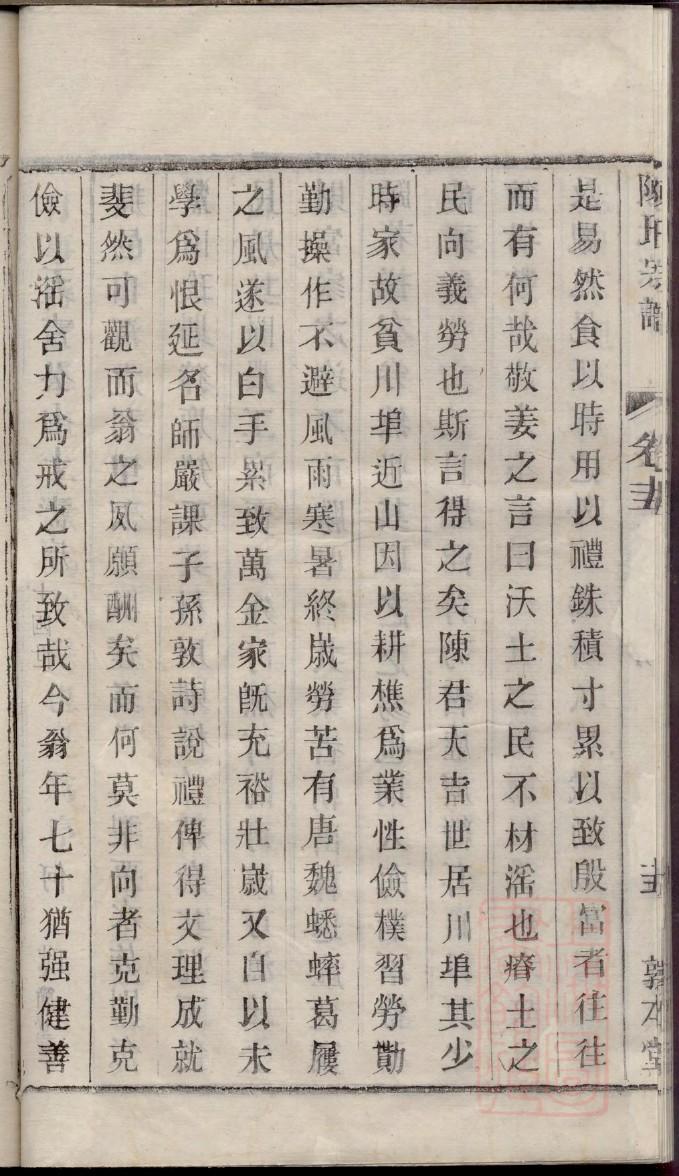 陳氏宗譜 卷 敦本堂
是易然食以時用以禮銖積寸累以致殷富者往往
而有何哉敬姜之言曰沃土之民不材滛也瘠土之
民向義勞也斯言得之矣陳君天吉世居川埠其少
時家故貧川埠近山因以耕樵爲業性儉樸習勞勤
勤操作不避風雨寒暑終歲勞苦有唐魏蟋蟀葛屨
之風遂以白手累致萬金家旣充裕壯歲又自以未
學爲恨延名師嚴課子孫敦詩說禮俾得文理成就
斐然可觀而翁之夙願酬矣而何莫非向者克勤克
儉以滛舍力爲戒之所致哉今翁年七十猶强健善